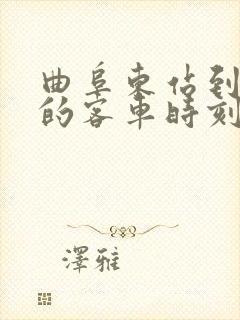 曲阜東佔到
的客車時刻
澤雅